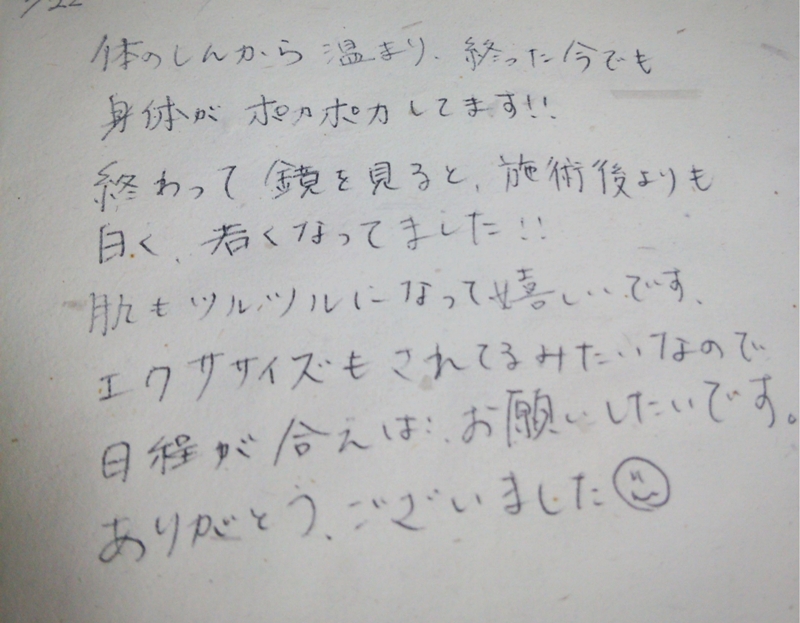 /22
体のしんから温まり、終った今でも
身体がポカポカしてます!!
終わって鏡を見ると、施術後よりも
白く、若くなってました!!
肌もツルツルになって嬉しいです、
エクササイズもされてるみたいなので
日程が合えば、お願いしたいです。
ありがとう、ございました